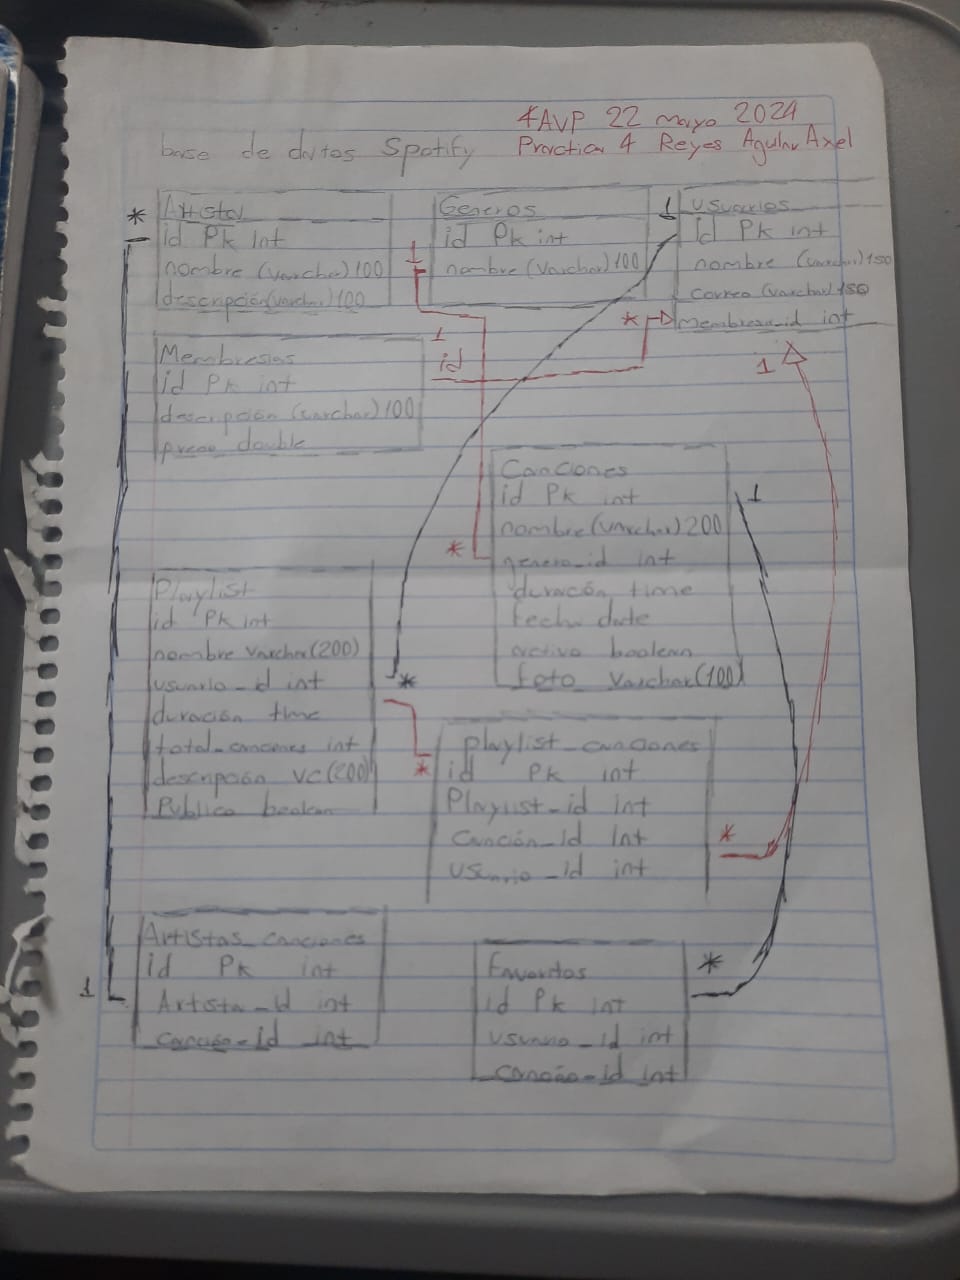 4AVP 22 mayo 2024
base de datos Spotify Practica 4 Reyes Aguilar Axel
* Artista
id Pk int
nombre (varchar) 100
descripción (varchar) 100
Generos
id Pk int
nombre (varchar) 100
1
1 usuarios
id Pk int
nombre (varchar) 150
correo (varchar) 150
* Membresia_id int
1
id
1
Membresias
id Pk int
descripción (varchar) 100
precio double
Canciones
id Pk int
1
nombre (varchar) 200
* genero_id int
duración time
fecha date
activo boolean
foto varchar (100)
Playlist
id Pk int
nombre varchar (200)
usuario_id int
*
duración time
total_canciones int
descripción vc (200)
Publico boolean
Playlist_canciones
* id Pk int
Playlist_id int
Canción_id int
*
usuario_id int
Artistas_canciones
id Pk int
1 Artista_id int
canción_id int
Favoritos
*
id Pk int
usuario_id int
canción_id int